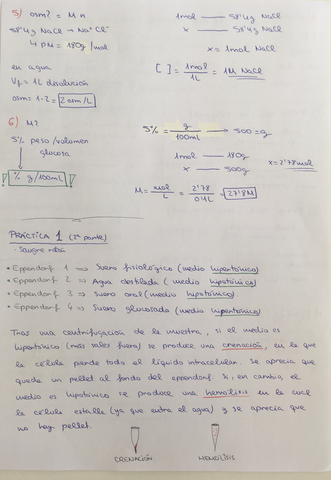 5) osm? = M·n
58'44g NaCl → Na⁺Cl⁻
↳ PM = 180g/mol
en agua
Vf = 1L disolución
osm = 1·2 = 2 osm/L
1mol —— 58'44g NaCl
x —— 58'44g NaCl
x = 1mol NaCl
[ ] = 1mol / 1L = 1M NaCl
6) M?
5% peso/volumen
glucosa
% g/100mL
5% = g / 100mL → 500 = g
1mol —— 180g
x —— 500g
x = 2'78 mol
M = mol / L = 2'78 / 0'1L = 27'8M
PRÁCTICA 1 (2ª parte)
· Sangre rata
• Eppendorf 1 ⇒ Suero fisiológico (medio hipertónico)
• Eppendorf 2 ⇒ Agua destilada (medio hipotónico)
• Eppendorf 3 ⇒ Suero oral (medio hipotónico)
• Eppendorf 4 ⇒ Suero glucosado (medio hipertónico)
Tras una centrifugación de la muestra, si el medio es
hipertónico (más sales fuera) se produce una crenación, en la que
la célula pierde todo el líquido intracelular. Se aprecia que
queda un pellet al fondo del eppendorf. Si, en cambio, el
medio es hipotónico se produce una hemólisis en la cual
la célula estalla (ya que entra el agua) y se aprecia que
no hay pellet.
CRENACIÓN
HEMÓLISIS